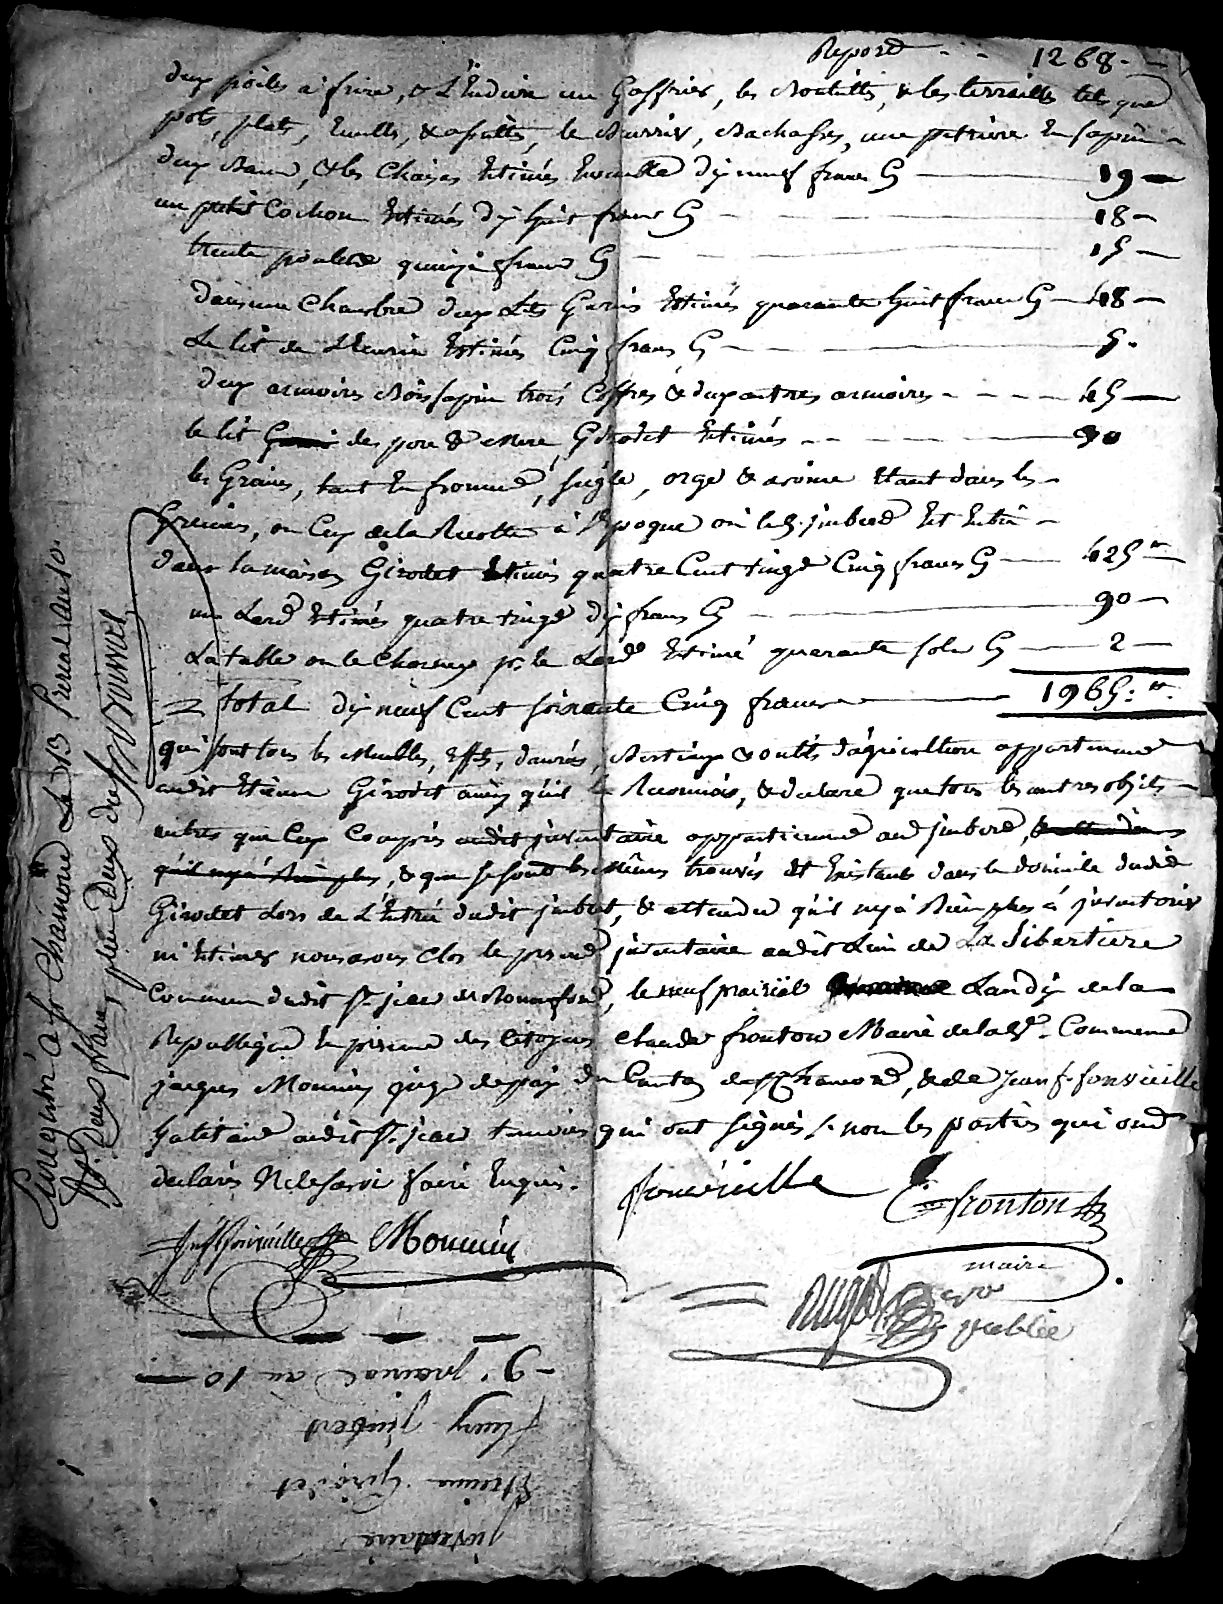 Report - - - 1268 - -
deux poiles a frire, & L'Enduire un Gaffrier, les Bouteilles, & les terrailles tels que
pots, plats, Ecuelles, & assiettes, le Beurrier, Bachasses, une petriere En sapin -
deux Bancs, & les Chaises Estimés Ensemble dix neuf francs Cy — 19 —
un petit Cochon Estimés dix huit francs Cy — 18 —
trente poulets quinze francs Cy — 15 —
dans une Chambre deux Lits Garnis Estimés quarante huit francs Cy — 48 —
Le lit de Estimés Cinq francs Cy — 5 -
deux armoires Bois sapin trois Coffres & deux autres armoires - - - - 45 —
le lit des pere & mere, Girodet Estimés - - — 90
les Grains, tant En froment, seigle, orge & avoine Etant dans les -
Greniers, ou Ceux de la Recolte à L'Epoque où led. jimbert Est Entré -
dans la maison Girodet Estimés quatre Cent vingt Cinq francs Cy — 425 "
un Lard Estimés quatre vingt dix francs Cy — 90 —
La table ou le pr. le Lard Estimé quarante sols Cy — 2 —
total dix neuf Cent soixante Cinq francs — 1965: "
qui sont tous les Meubles, Effets, danrées, Bestiaux & outils d'agriculture appartenant
audit Etienne Girodet ainsi qu'il Le Reconnois, & declare que tous les autres objets -
autres que Ceux Compris audit inventaire appartiennent aud jimbert, & attendu
qu'il n'y a Rien plus, & que se sont les mêmes trouvés et Existants dans le domicile dudit
Girodet Lors de L'Entrée dudit jimbert, & attendu qu'il n'y a Rien plus à inventorier
ni Estimer nous avons Clos le present inventaire audit Lieu de La Libertiere
Commune dudit St. jean de Bonnefond, le neuf prairial Lan dix de la
Republique En presence des Citoyens Claude fronton Maire de lad. Commune
jacques Monnin juge de paix du Canton de St Chamond, & de Jean f. fonvieille
habitant audit St. jean temoins qui ont signés & non les parties qui ont
declarés Ne le savoir faire Enquis.
fonvieille fronton
fonvieille Monnin
maire
no.re
public
9. prairial an 10
fleury jimbert
Etienne Girodet
Inventaire
Enregistré a St Chamond Le 13 Prerial an 10.
R. Deux francs plus Deux